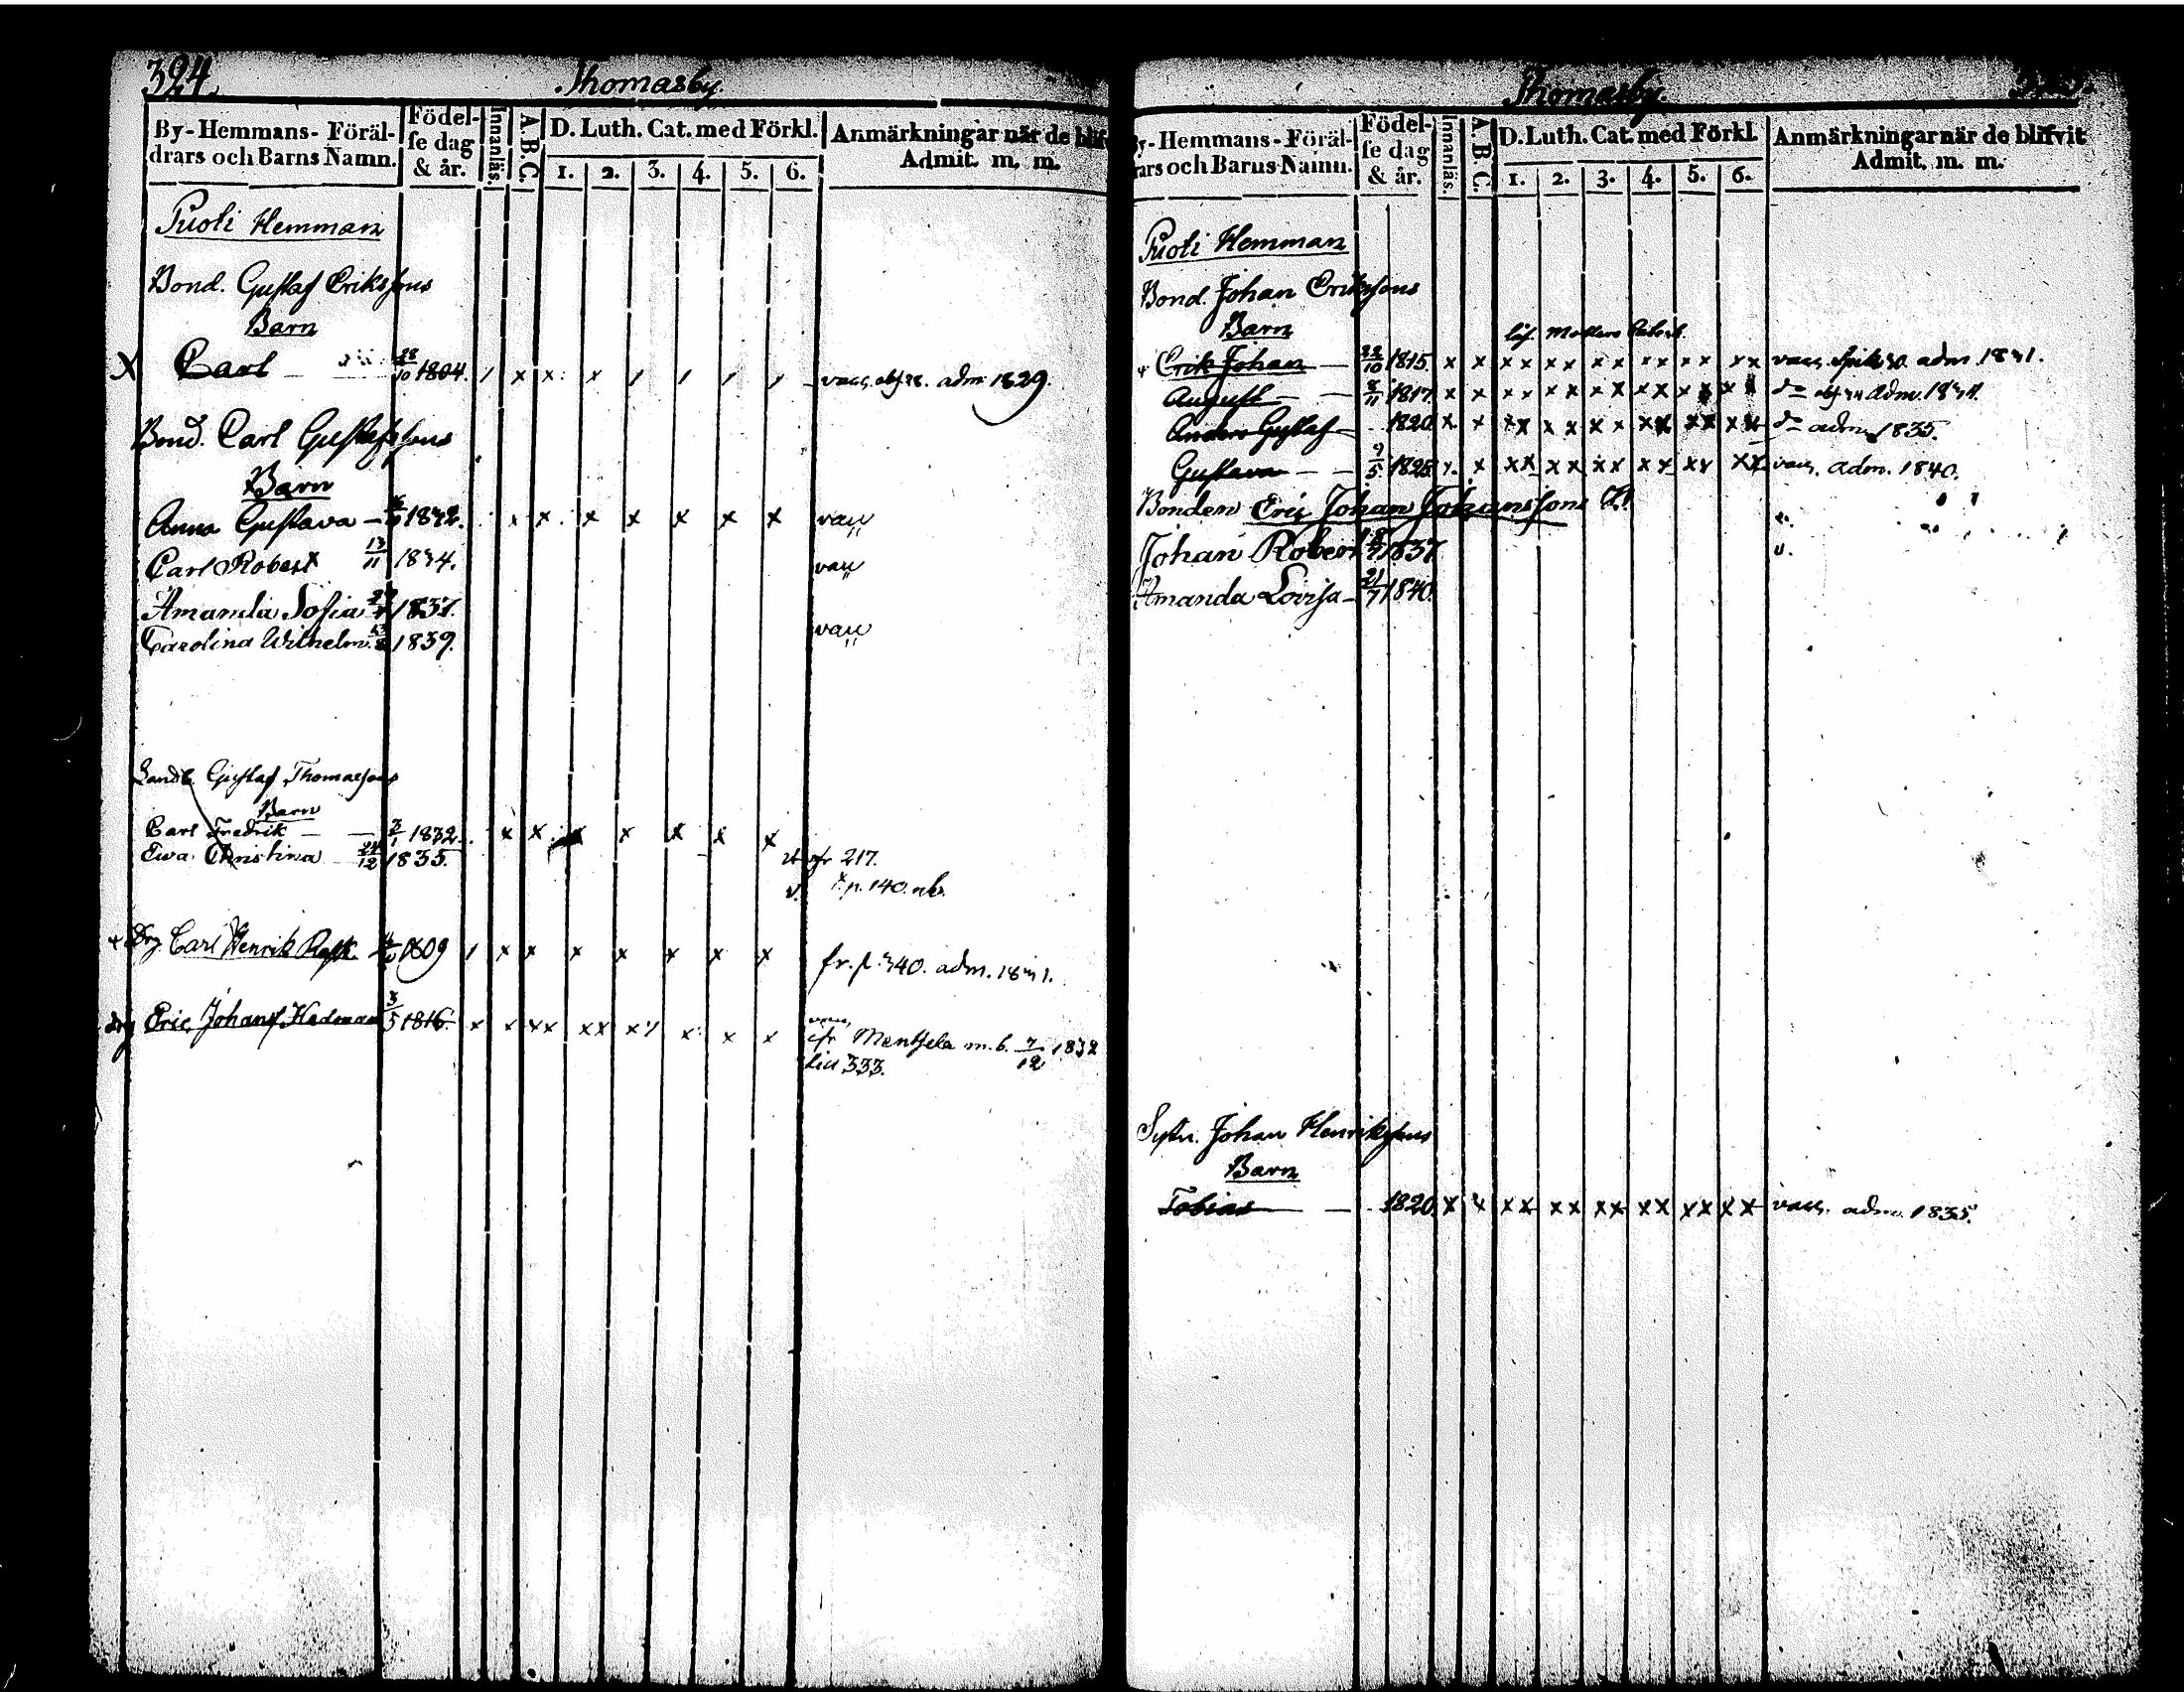 324.
Thomasby.
By-Hemmans-Föräl-
drars och Barns Namn.
Födel-
se dag
& år.
Innanläs.
A.B.C.
D. Luth. Cat. med Förkl.
1. 2. 3. 4. 5. 6.
Anmärkningar när de blif
Admit. m. m.
Puoti Hemman
Bond. Gustaf Erikssons
Barn
X Carl — 28/10 1804. / x x x / / / / vacc. abs. 28. adm 1829.
Bond. Carl Gustafssons
Barn
Anna Gustava — 1832. x x x x x x x vacc
Carl Robert 13/11 1834. vacc
Amanda Sofia 1837.
Carolina Wilhelm. 1839. vacc
Landb. Gustaf Thomassons
Barn
Carl Fredrik — — 3/1 1832. x x x x x x x
Ewa Christina 24/12 1835. cfr 217.
v. p. 140. nb.
x Drg Carl Henrik Rask 1809 / x x x x x x x fr. p. 340. adm. 1831.
drg Eric Johans. Hedman 3/5 1816. x x xx xx xx x x x
cfr Mentsela m. b. 7/12 1832
Lid 333.
Thomasby.
By-Hemmans-Föräl-
rars och Barns Namn.
Födel-
se dag
& år.
Innanläs.
A.B.C.
D. Luth. Cat. med Förkl.
1. 2. 3. 4. 5. 6.
Anmärkningar när de blifvit
Admit. m. m.
Puoti Hemman
Bond. Johan Erikssons
Barn
Erik Johan — 22/10 1815. x x xx xx xx xx xx xx vacc. adm 1831.
August — — 8/11 1817. x x xx xx xx xx xx xx do adm. 1834.
Anders Gustaf — 1820 x x xx xx xx xx xx xx do adm. 1835.
Gustava — — 9/5 1825 x x xx xx xx xx xx xx vacc. adm. 1840.
Bonden Eric Johan Johanssons
Johan Robert 1837. v.
Amanda Lovisa — 21/7 1840.
Sytn. Johan Henrikssons
Barn
Tobias — 1820. x x xx xx xx xx xx xx vacc. adm. 1835.